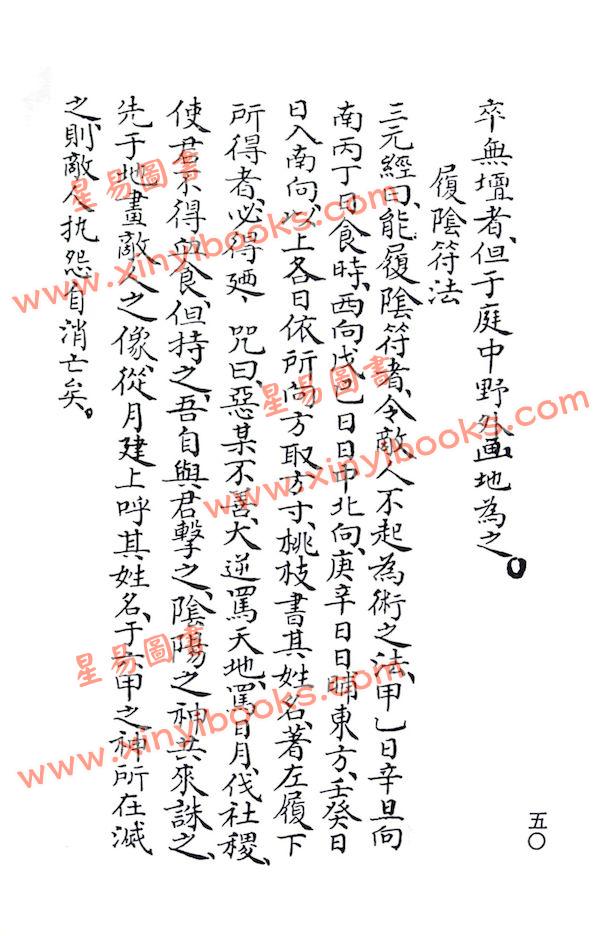 卒無壇者、但于庭中野外画地為之。
履陰符法
三元經曰、能履陰符者、令敵人不起為術之法、甲乙日辛旦向
南丙丁日食時、西向、戊己日日中北向、庚辛日日晡東方、壬癸日
日入南向、以上各日依所向方取方寸、桃枝書其姓名、著左履下
所得者、必得殃、咒曰、惡某不善、大逆罵天地、罵日月、伐社稷、
使君不得血食、但持之、吾自與君擊之、陰陽之神共來誅之、
先于地畫敵人之像、從月建上呼其姓名、于六甲之神所在滅
之、則敵人执怨自消亡矣。
五〇
星易圖書
www.xinyibooks.com
星易圖書
www.xinyibooks.com
星易圖書
www.xinyibooks.com